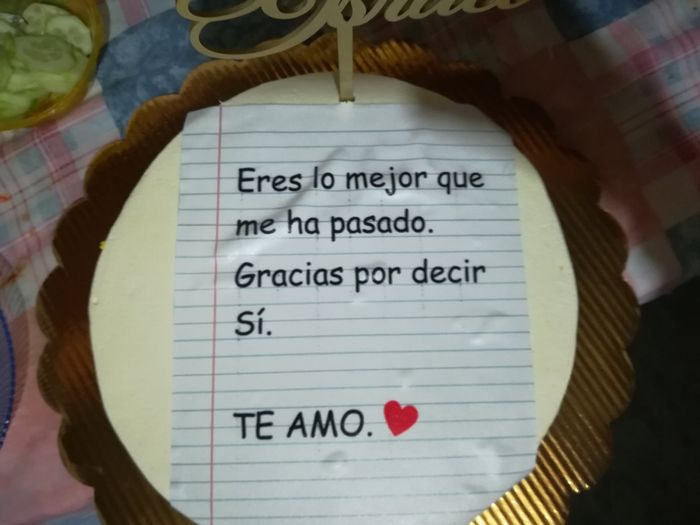 Eres lo mejor que
me ha pasado.
Gracias por decir
Sí.
TE AMO.